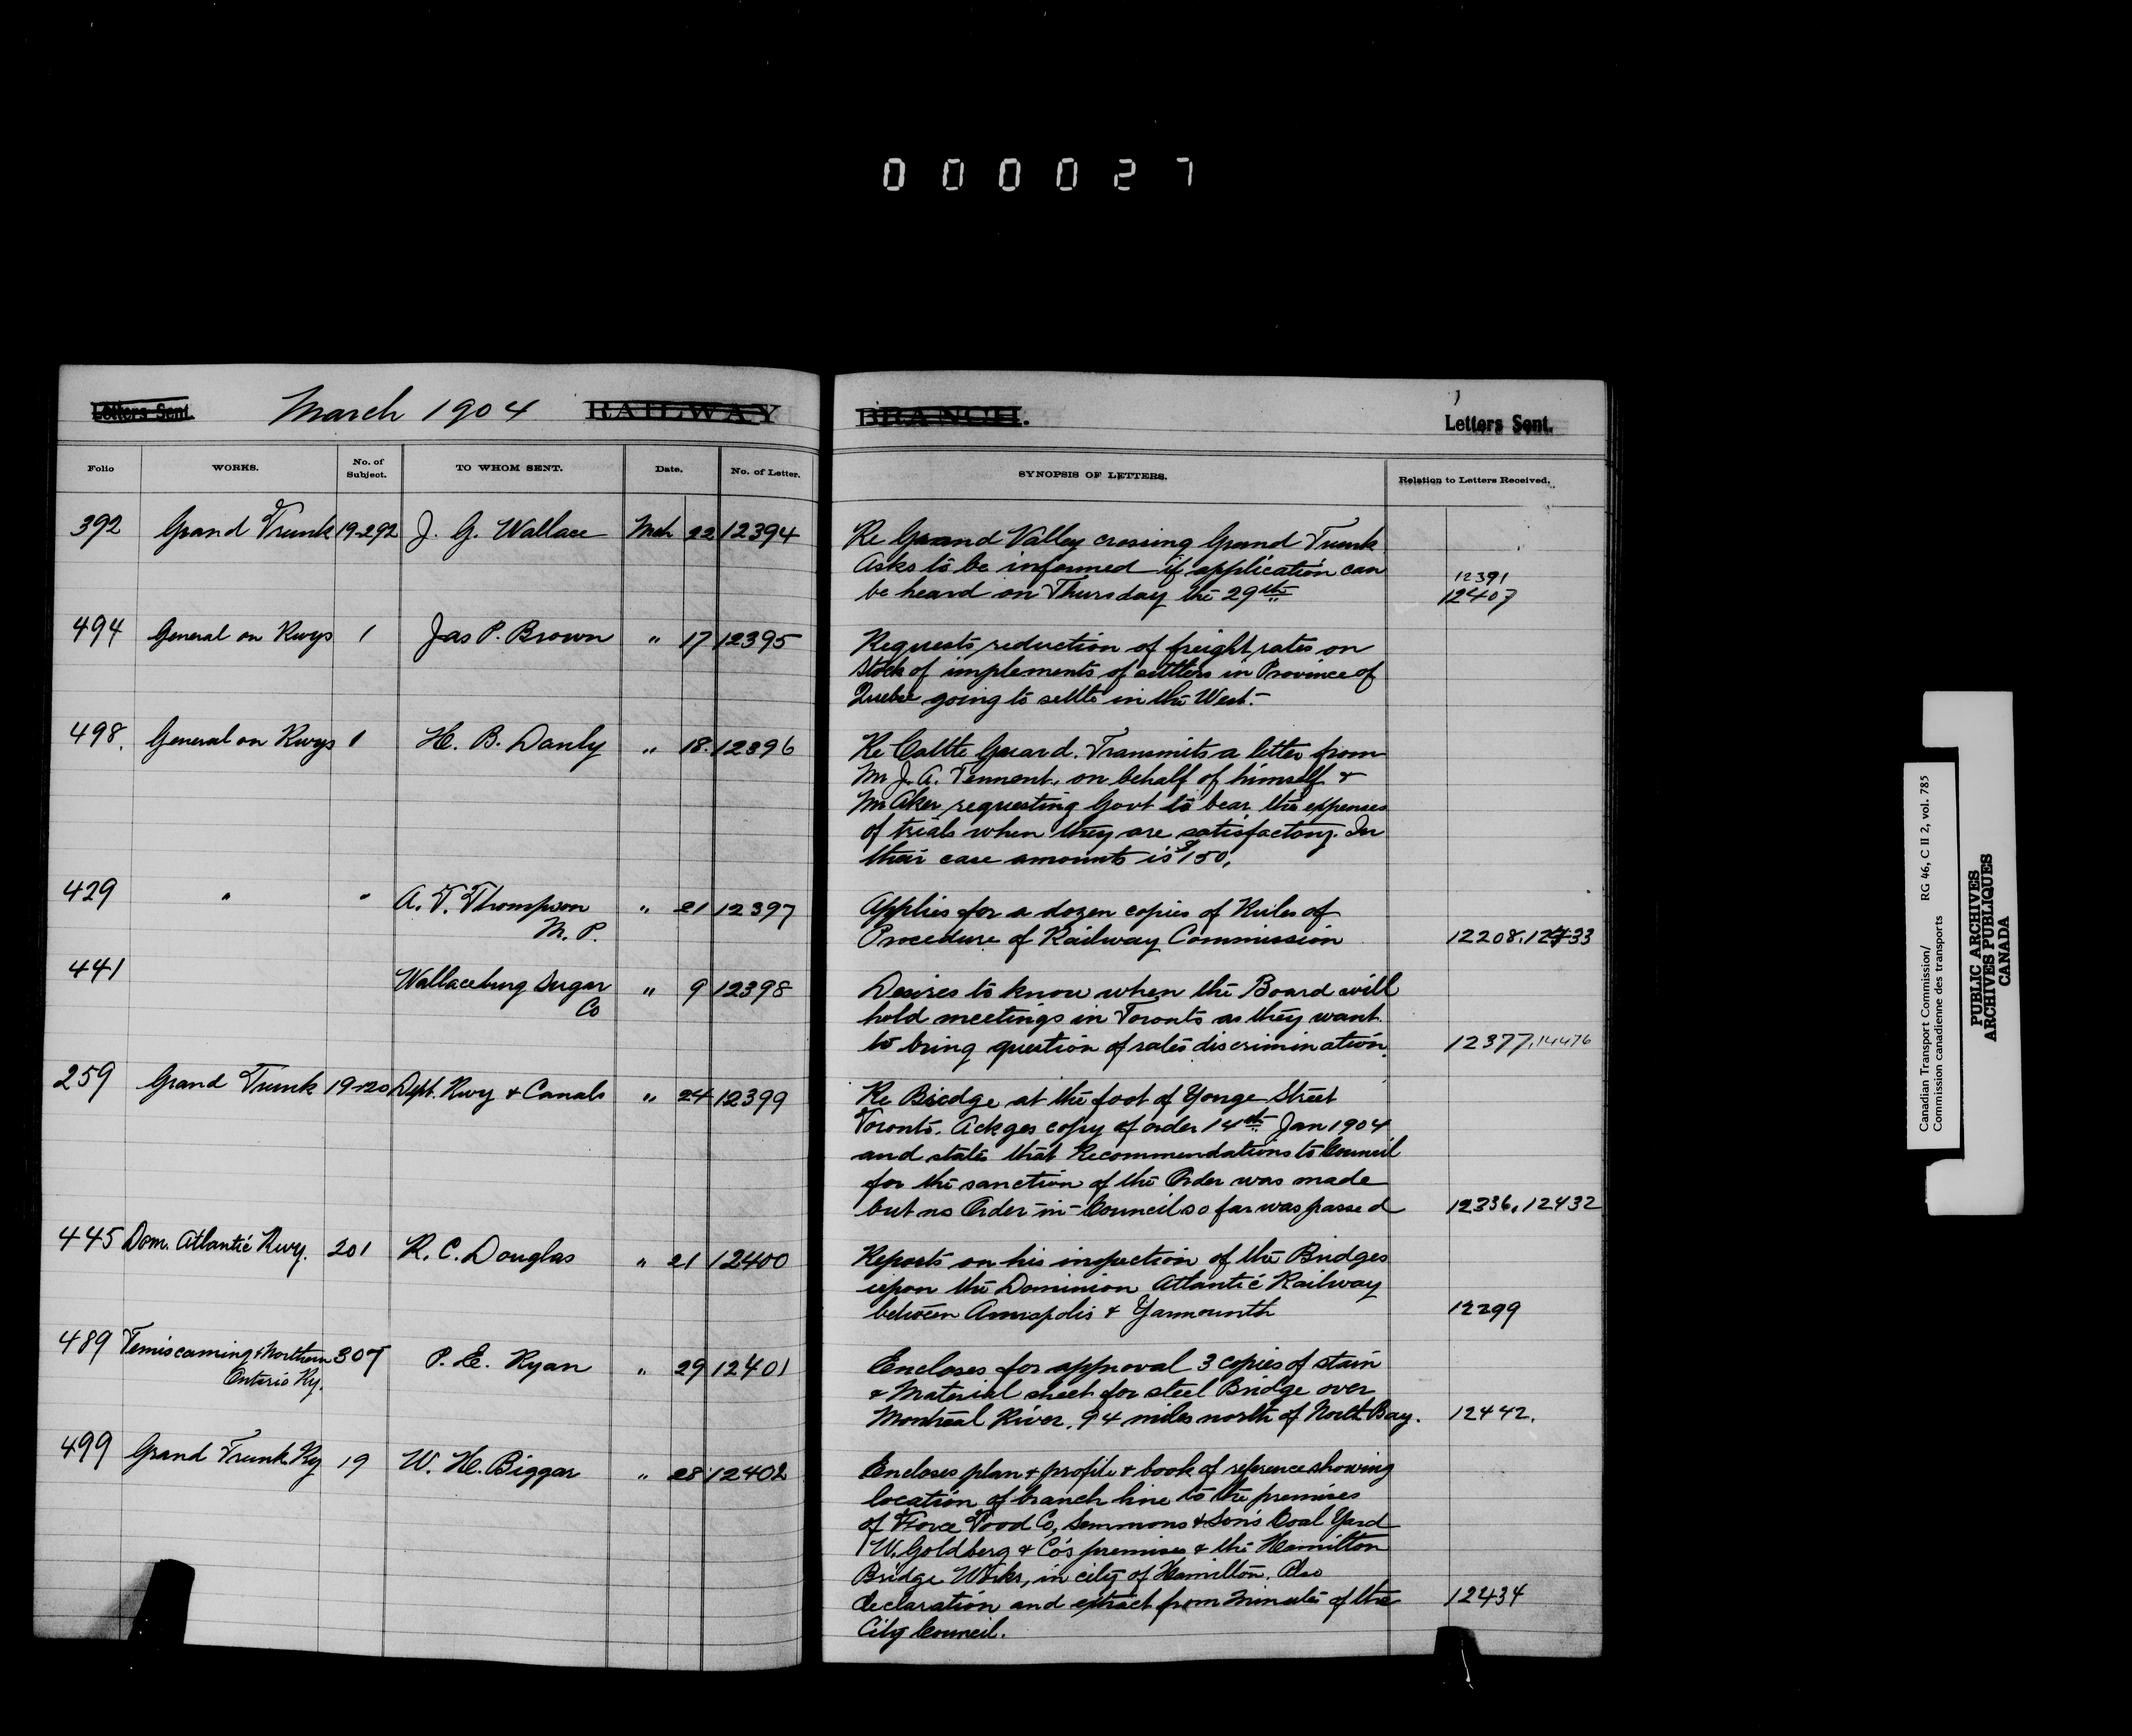 000027
Letters Sent. March 1904 RAILWAY BRANCH. Letters Sent.
Folio WORKS. No. of Subject. TO WHOM SENT. Date. No. of Letter. SYNOPSIS OF LETTERS. Relation to Letters Received.
392 Grand Trunk 19-292 J. G. Wallace Mch 22 12394 Re Grand Valley crossing Grand Trunk
Asks to be informed if application can 12391
be heard on Thursday the 29th 12407
494 General on Rwys 1 Jas P. Brown " 17 12395 Requests reduction of freight rates on
stock of implements of settlers in Province of
Quebec going to settle in the West.-
498. General on Rwys 1 H. B. Danly " 18. 12396 Re Cattle Guard. Transmits a letter from
Mr J. A. Tennent, on behalf of himself &
Mr Aker, requesting Govt to bear the expenses
of trials when they are satisfactory. In
their case amounts is $150.
429 " " A. T. Thompson " 21 12397 Applies for a dozen copies of Rules of
M. P. Procedure of Railway Commission 12208. 12433
441 Wallaceburg Sugar " 9 12398 Desires to know when the Board will
Co hold meetings in Toronto as they want
to bring question of rates discrimination. 12377, 14476
259 Grand Trunk 19-120 Dept. Rwy & Canals " 24 12399 Re Bridge at the foot of Yonge Street
Toronto. Ackges copy of order 14th Jan 1904
and states that Recommendations to Council
for the sanction of the Order was made
but no Order-in-Council so far was passed 12336, 12432
445 Dom. Atlantic Rwy. 201 R. C. Douglas " 21 12400 Reports on his inspection of the Bridges
upon the Dominion Atlantic Railway
between Annapolis & Yarmounth 12299
489 Temiscaming & Northern 307 P. E. Ryan " 29 12401 Encloses for approval 3 copies of stain
Ontario Ry. & Material sheet for steel Bridge over
Montreal River, 94 miles north of North Bay. 12442.
499 Grand Trunk Ry 19 W. H. Biggar " 28 12402 Encloses plan & profile & book of reference showing
location of branch line to the premises
of Force Food Co, Semmons & Son's Coal Yard
W. Goldberg & Co's premises & the Hamilton
Bridge Works, in city of Hamilton. Also
declaration and extract from minutes of the 12434
City Council.
Canadian Transport Commission/ RG 46, C II 2, vol. 785
Commission canadienne des transports
PUBLIC ARCHIVES
ARCHIVES PUBLIQUES
CANADA